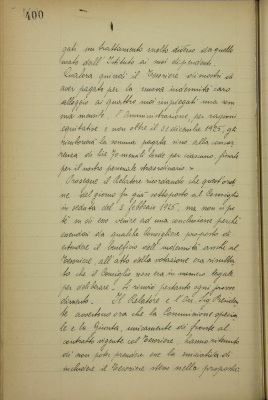 400
gati un trattamento molto diverso da quello
usato dall'Istituto ai suoi dipendenti.
Qualora quindi il Tesoriere dimostri di
aver pagato per la nuova indennità caro
alloggio ai quattro suoi impiegati una som
ma mensile l'Amministrazione, per ragioni
equitative e non oltre il 31 dicembre 1925, gli
rimborserà la somma pagata sino alla concor
renza di lire mensili lorde per ciascuno, fissate
per il nostro personale straordinario."
Prosegue il Relatore ricordando che quest'ordi
ne del giorno fu già sottoposto al Consiglio
in seduta del 3 febbraio 1925, ma non si po
tè in esso venire ad una conclusione perchè
essendosi da qualche Consigliere proposto di
estendere il beneficio dell'indennità anche al
Tesoriere, all'atto della votazione era risulta
to che il Consiglio non era in numero legale
per deliberare. Si rinviò pertanto ogni provve
dimento. Il Relatore e l'On. Sig. Presiden
te avvertono ora che la Commissione specia
le e la Giunta, unicamente di fronte al
contratto vigente col Tesoriere hanno ritenuto
di non poter prendere esse la iniziativa di
includere il Tesoriere stesso nella proposta